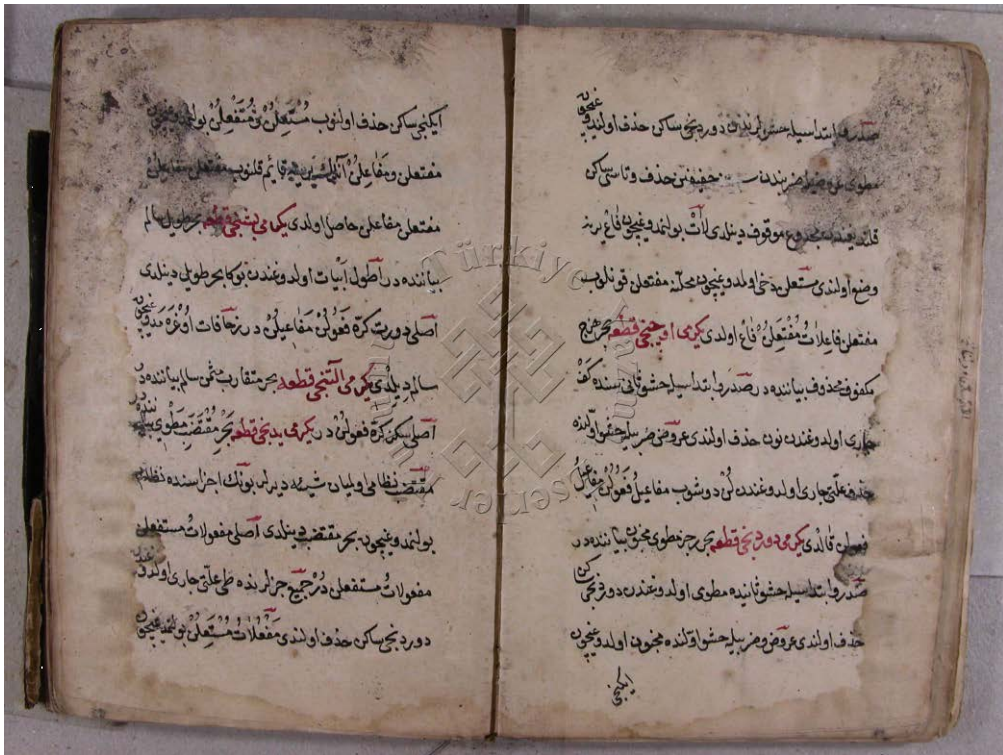 صدر و ابتدا سیله حشولرندن دوردنجی ساکن حذف اولندوغیچون
مطوی عروض و ضربنده سبب خفیفین حذف و تاسی ساکن
قلندیغندن موقوف دینلدی لات بولنمدوغیچون فاع یرینه
وضع اولندی مستعلن دخی اولدوغیچون محلنه مفتعلن قونلوب
مفتعلن فاعلات مفتعلن فاع اولدی یکرمی اوچنجی قطعه بحر هزج
مکفوف محذوف بیاننده در صدر و ابتدا سیله حشو ثانی سنده کف
جاری اولدوغندن نون حذف اولندی عروض و ضربیله حشو اولنده
حذف علتی جاری اولدوغندن لن دوشوب مفاعیل فعولن مفاعیل
فعولن قالدی یکرمی دوردنجی قطعه بحر رجز مطوی مخبون بیاننده در
صدر و ابتدا سیله حشو ثانیده مطوی اولدوغندن دوردنجی ساکن
حذف اولندی عروض و ضربیله حشو اولنده مخبون اولدوغیچون
ایکنجی
ایکنجی ساکن حذف اولنوب مستعلن متفعلن بولنمدوغیچون
مفتعلن و مفاعلن آنلرک یرینه قایم قلنوب مفتعلن مفاعلن
مفتعلن مفاعلن حاصل اولدی یکرمی بشنجی قطعه بحر طویل سالم
بیاننده در اطول ابیات اولدوغندن بوکا بحر طویل دینلدی
اصلی دورت کره فعولن مفاعیلن در زحافات اوغرامدوغیچون
سالم دینلدی یکرمی التنجی قطعه بحر متقارب مثمن سالم بیاننده در
اصلی سکز کره فعولن در یکرمی یدنجی قطعه بحر مقتضب مطوی بیاننده در
مقتضب نظامی اولمیان شیئه دیرلر بونک اجزاسنده نظام
بولنمدوغیچون بحر مقتضب دینلدی اصلی مفعولات مستفعلن
مفعولات مستفعلن در جمیع جزلرنده طی علتی جاری اولدوغندن
دوردنجی ساکن حذف اولندی مفعلات مستعلن بولنمدوغیچون